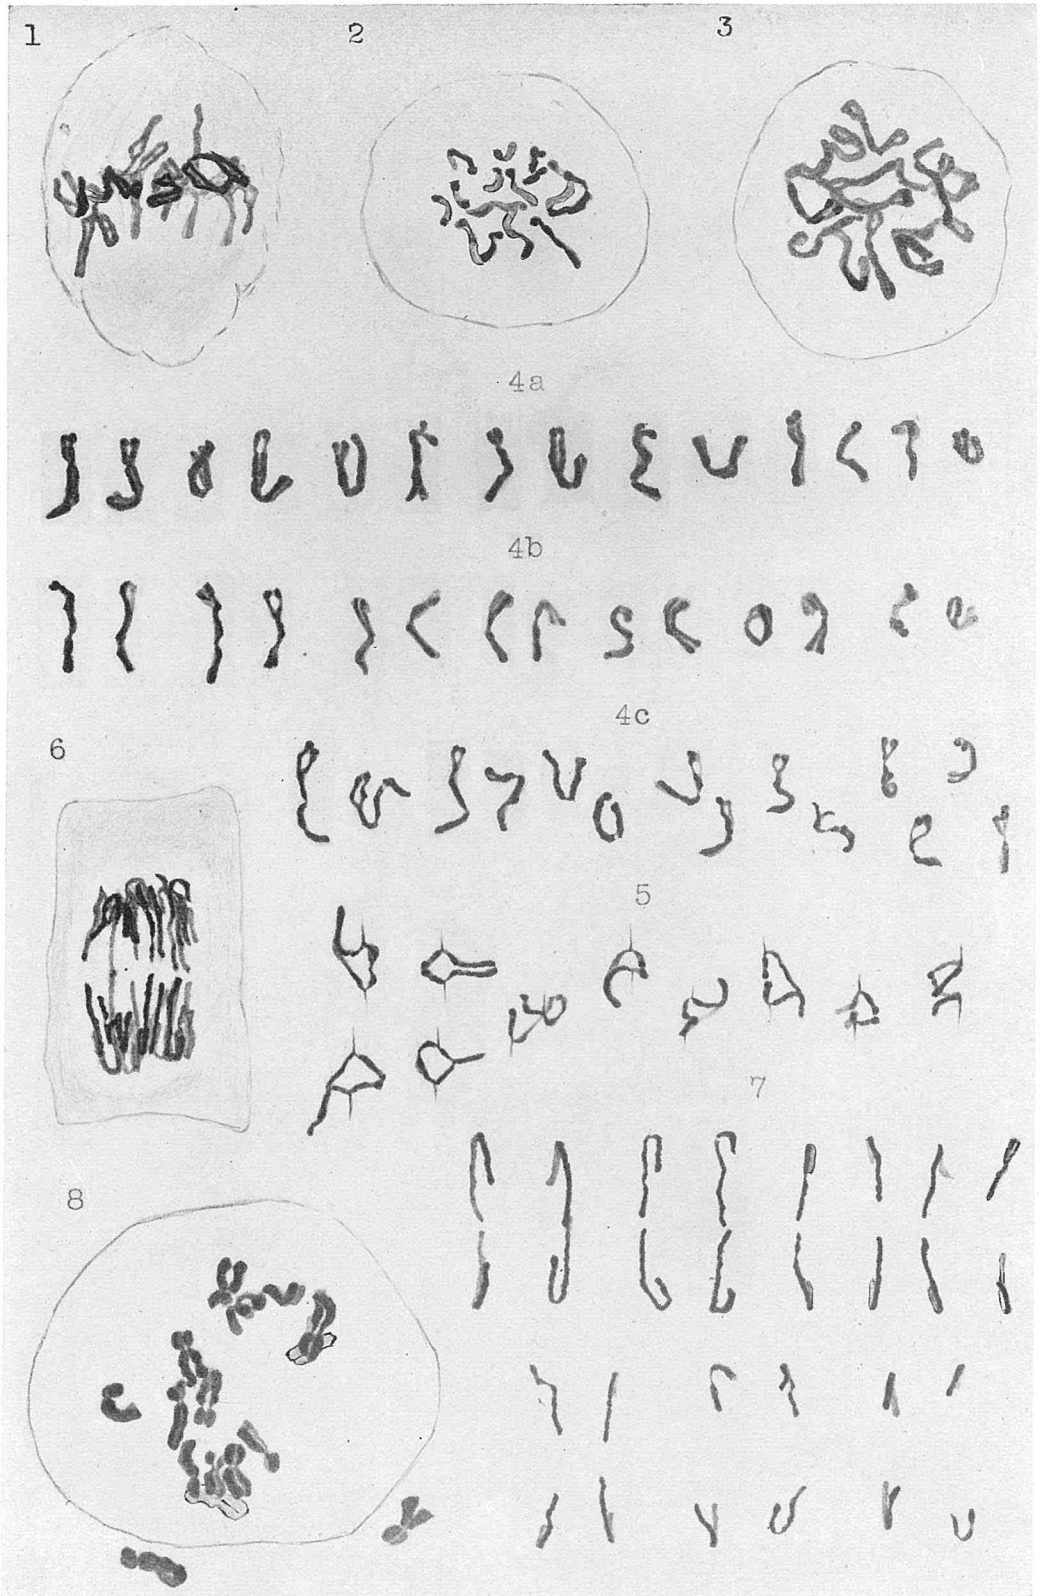 1 2 3
4a
4b
4c
6
5
7
8